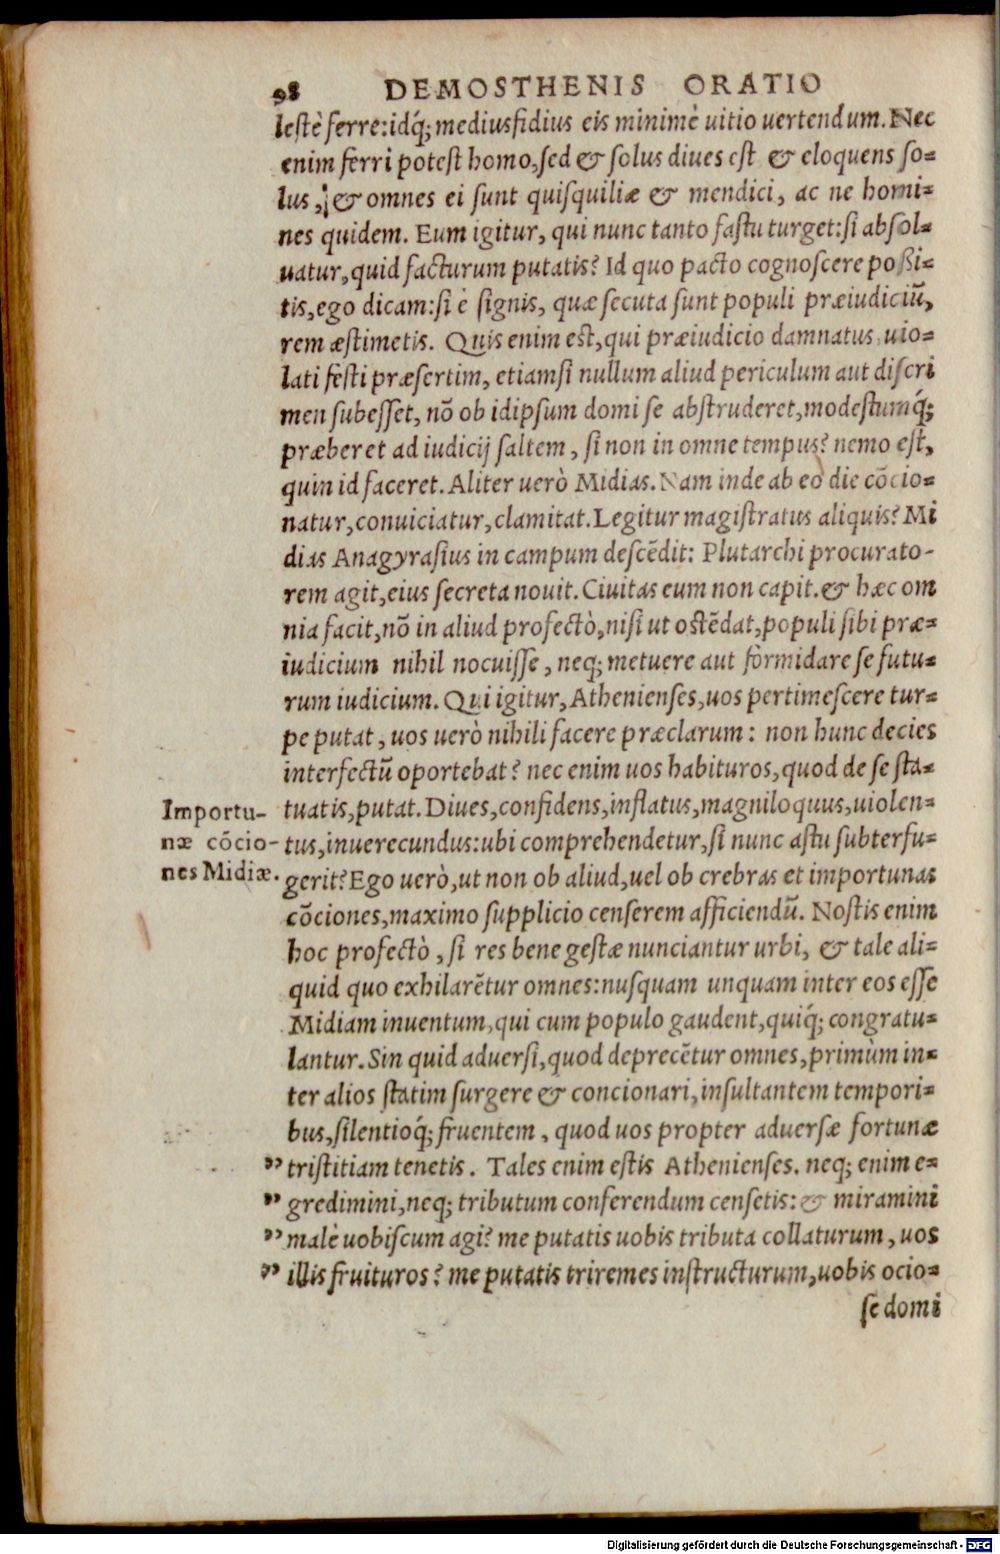 98 DEMOSTHENIS ORATIO
lestè ferre:idq́; mediusfidius eis minimè uitio uertendum. Nec
enim ferri potest homo, sed & solus diues est & eloquens so=
lus, & omnes ei sunt quisquiliæ & mendici, ac ne homi=
nes quidem. Eum igitur, qui nunc tanto fastu turget: si absol=
uatur, quid facturum putatis? Id quo pacto cognoscere poßi=
tis, ego dicam: si è signis, quæ secuta sunt populi præiudiciũ,
rem æstimetis. Quis enim est, qui præiudicio damnatus uio=
lati festi præsertim, etiamsi nullum aliud periculum aut discri
men subesset, nõ ob idipsum domi se abstruderet, modestumq́;
præberet ad iudicij saltem, si non in omne tempus? nemo est,
quin id faceret. Aliter uerò Midias. Nam inde ab eo die cõcio=
natur, conuiciatur, clamitat. Legitur magistratus aliquis? Mi
dias Anagyrasius in campum descẽdit: Plutarchi procurato-
rem agit, eius secreta nouit. Ciuitas eum non capit. & hæc om
nia facit, nõ in aliud profectò, nisi ut ostẽdat, populi sibi præ=
iudicium nihil nocuisse, neq; metuere aut formidare se futu=
rum iudicium. Qui igitur, Athenienses, uos pertimescere tur=
pe putat, uos uerò nihili facere præclarum: non hunc decies
interfectũ oportebat? nec enim uos habituros, quod de se sta=
Importu-
næ cõcio-
nes Midiæ.
tuatis, putat. Diues, confidens, inflatus, magniloquus, uiolen=
tus, inuerecundus: ubi comprehendetur, si nunc astu subterfu=
gerit? Ego uerò, ut non ob aliud, uel ob crebras et importunas
cõciones, maximo supplicio censerem afficiendũ. Nostis enim
hoc profectò, si res bene gestæ nunciantur urbi, & tale ali=
quid quo exhilarẽtur omnes: nusquam unquam inter eos esse
Midiam inuentum, qui cum populo gaudent, quiq́; congratu=
lantur. Sin quid aduersi, quod deprecẽtur omnes, primùm in=
ter alios statim surgere & concionari, insultantem tempori=
bus, silentioq́; fruentem, quod uos propter aduersæ fortunæ
” tristitiam tenetis. Tales enim estis Athenienses. neq; enim e=
” gredimini, neq; tributum conferendum censetis: & miramini
” malè uobiscum agi? me putatis uobis tributa collaturum, uos
” illis fruituros? me putatis triremes instructurum, uobis ocio=
se domi
Digitalisierung gefördert durch die Deutsche Forschungsgemeinschaft - DFG